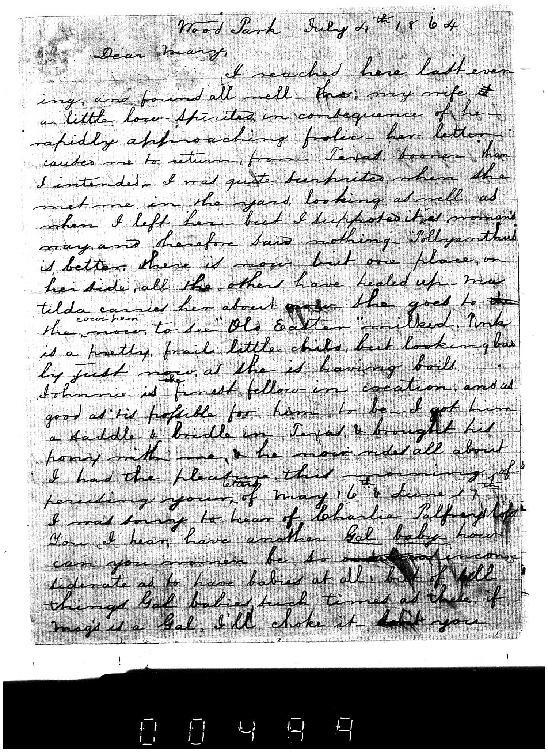 Wood Park July 4th 1864
Dear Mary,
I reached here last even
ing, and found all well
a little low spirited in consequence of he
rapidly approaching frolic - her letter
caused me to return from Texas sooner than
I intended. I was quite surprised when she
met me in the yard looking as well as
when I left her but I supposed it a womans
way and therefore said nothing.
is better, there is now but one place, on
her side, all the others have healed up. Ma
tilda carries her about the goes to
the cow pen now, to see "Old Easter" milked. Pink
is a pretty, frail little child, but looking bad
ly just now, as she is having boils
Johnnie is the finest fellow in creation, and as
good as tis possible for him to be. I got him
a saddle & bridle in Texas & brought his
pony with me, & he now rides all about
I had the pleasure this morning of
perusing yours of May 16th & June 17th
I was sorry to hear of Charlie Palfreys
You I hear have another Gal baby how
can you women be so incon
siderate as to have babies at all but of all
things Gal babies, such times as these if
Mags is a Gal, I'll choke it you
00499